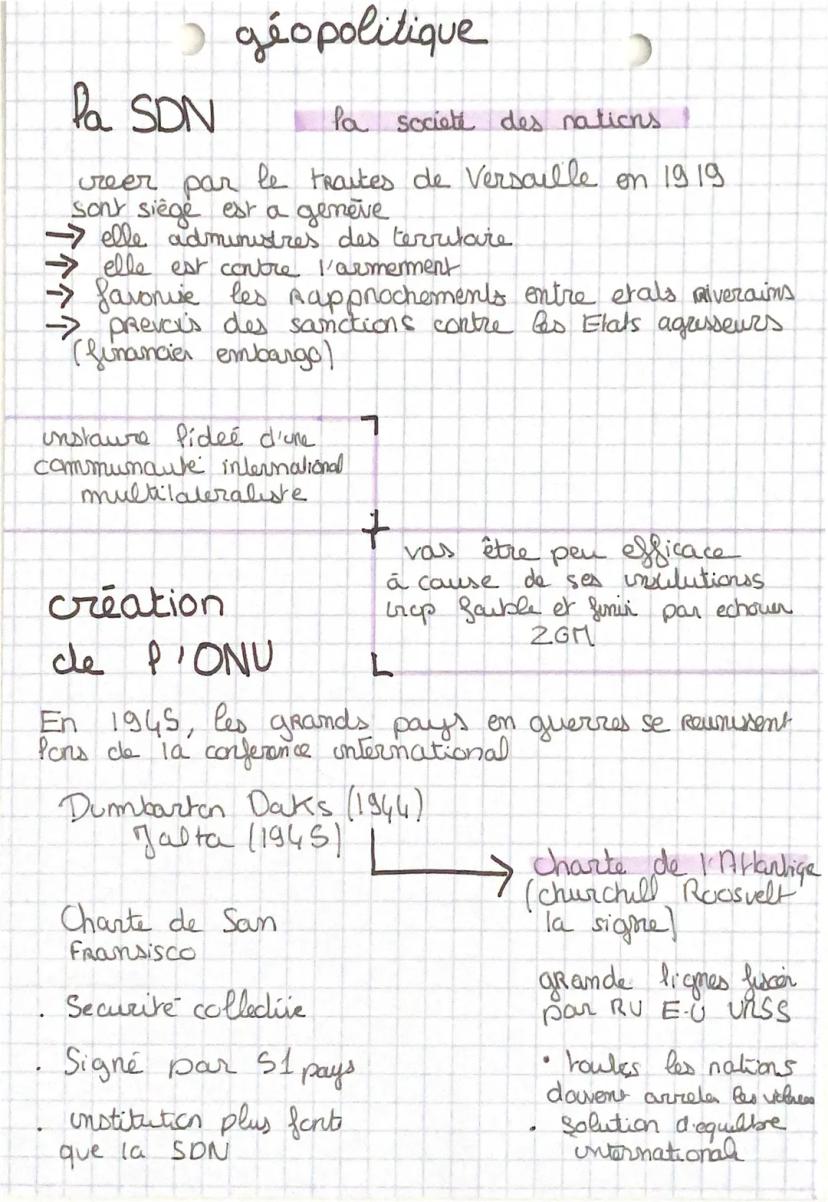 géopolitique
la SDN
la societé des nations
creer par le traites de Versaille en 1919
sont siège est a genève
→ elle administres des territaire
→ elle est contre l'armerment
→ favorise les Rapprochements entre etats riverains
→ prevois des sanctions contre les Etats agresseurs
(financier embargo)
instaure l'ideé d'une
communauté international
multilateraliste
vas être peu efficace
à cause de ses institutions
trop faible et finir par echouer
2GM
création
de l'ONU
En 1945, les grands pays en guerres se reunissent
lors de la conference international
Dumbarton Oaks (1944)
Yalta (1945)
charte de l'Atlantiqe
(churchill Roosvelt
la signe)
Charte de San
Fransisco
. Securité collective
. Signé par 51 pays
. institution plus forte
que la SDN
grande lignes fixer
par RU E-U URSS
• toutes les nations
doivent arreter les
. solution d'equilibre
internationale